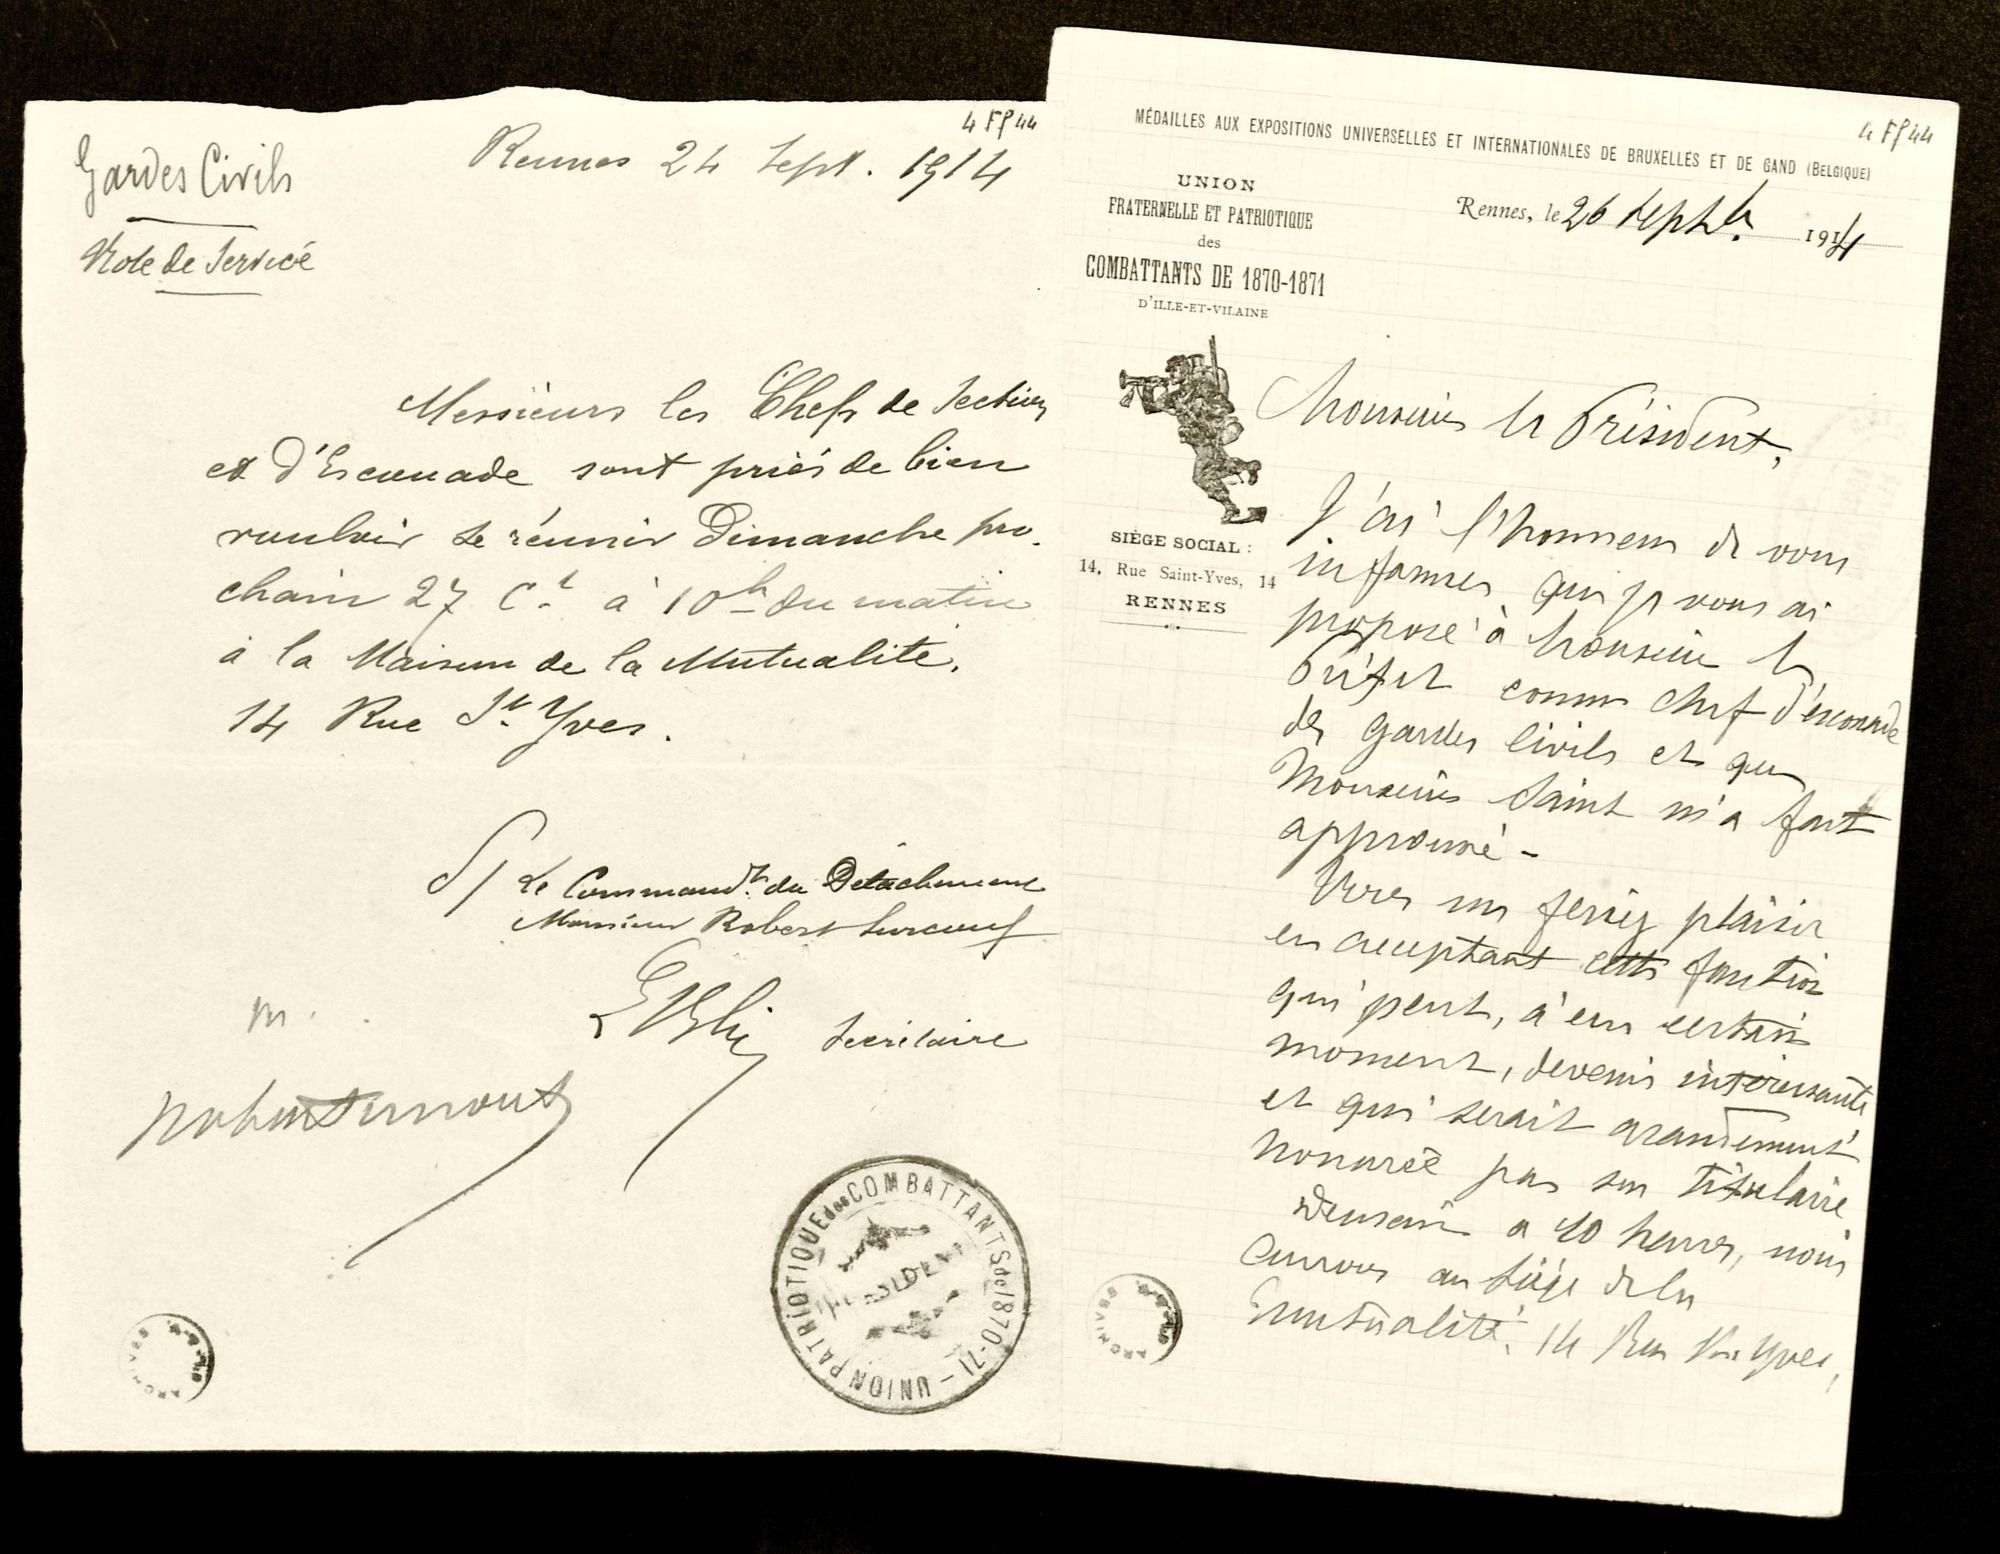 4 FF 44
Gardes Civils
Rennes 24 Sept. 1914
Note de Service
Messieurs les Chefs de Section
et d'Escouade sont priés de bien
vouloir se réunir Dimanche pro-
chain 27 Ct à 10h du matin
à la Maison de la Mutualité.
14 Rue St Yves.
Le Commandt du Détachement
Monsieur Robert Surcouf
Secrétaire
M.
Robert Surcouf
UNION PATRIOTIQUE des COMBATTANTS de 1870-71
PRÉSIDENT
ARCHIVES
4 FF 44
MÉDAILLES AUX EXPOSITIONS UNIVERSELLES ET INTERNATIONALES DE BRUXELLES ET DE GAND (BELGIQUE)
UNION
FRATERNELLE ET PATRIOTIQUE
des
COMBATTANTS DE 1870-1871
D'ILLE-ET-VILAINE
SIÈGE SOCIAL :
14, Rue Saint-Yves, 14
RENNES
Rennes, le 26 Septbre 1914
Monsieur le Président,
J'ai l'honneur de vous
informer que je vous ai
proposé à Monsieur le
Préfet comme chef d'escouade
des Gardes Civils et que
Monsieur Saint m'a fort
approuvé -
Vous me feriez plaisir
en acceptant cette fonction
qui peut, à un certain
moment, devenir intéressante
et qui serait grandement
honorée par son titulaire
Demain à 10 heures, nous
aurons au siège de la
Mutualité, 14 Rue St Yves,
ARCHIVES